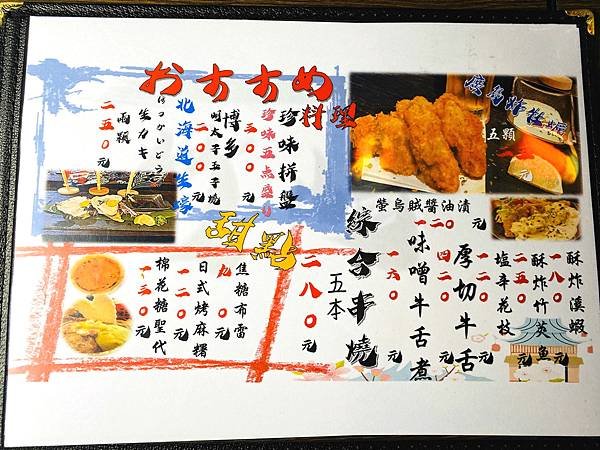 おすすめ
料理
廣島炸牡蠣
五顆
元
珍味拼盤
珍味五点盛り
三〇〇元
博多
明太子玉子燒
二〇〇元
北海道生蠔
ほっかいどう
生カキ
兩顆
二五〇元
螢烏賊醬油漬
一二〇元
酥炸溪蝦
元
酥炸竹筴魚
元
塩辛花枝
一二〇元
厚切牛舌
四二〇元
味噌牛舌煮
一六〇元
綜合串燒
五本
二八〇元
焦糖布蕾
九〇元
日式烤麻糬
一二〇元
棉花糖聖代
一三〇元